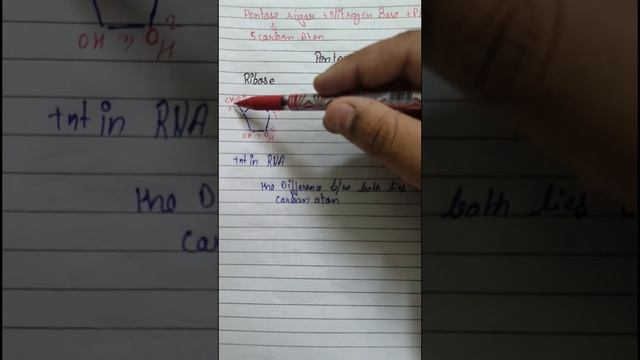 Pentose sugar + Nitrogen Base + P
5 carbon Atom
Pento
Ribose
CH₂OH
OH OH
3 2
+nt in RNA
the Difference b/w both lies
carbon atom